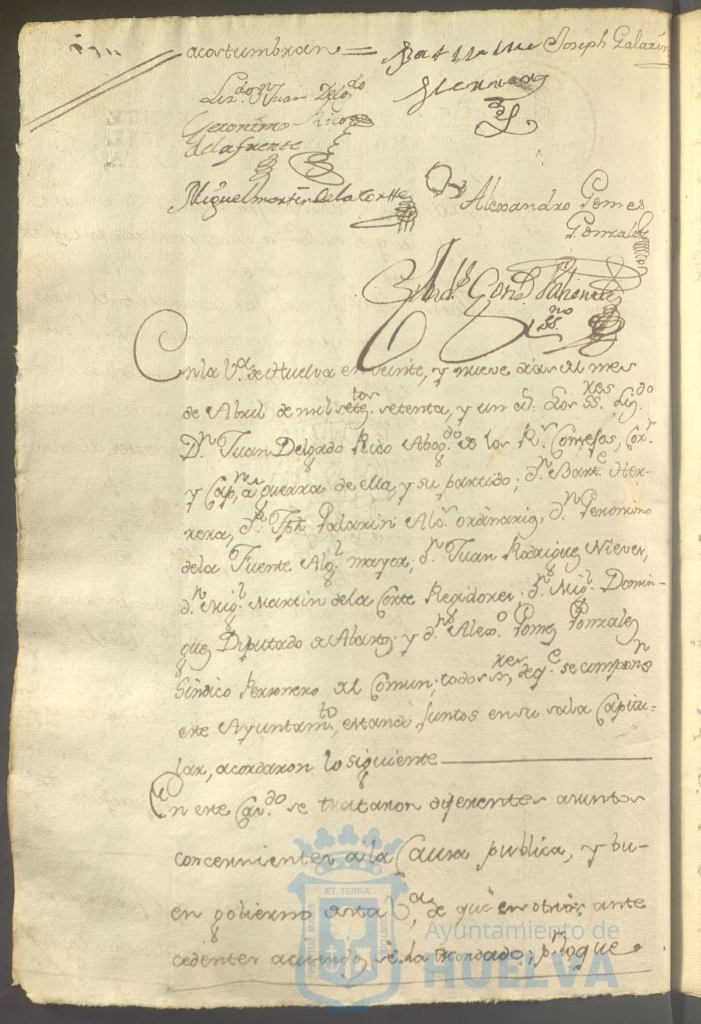 acostumbran = Bartolome Joseph Galarin
Herrera
Lizdo. Dn. Juan Delgdo.
Geronimo Rico
de la fuente
Miguel martin de la Corte
Alexandro Gomes
Gonzalez
Andrs. Gonz.
ssno
En la Va. de Huelva en veinte, y nueve dias del mes
de Abril de mil setestos. setenta, y un as. Los SSres. Lizdo.
Dn. Juan Delgado Rico Abogdo. de los Rs. Consejos, Corr.
y Capn. a guerra de ella, y su partido; dn. Barte. Her-
rera, dn. Jph Galarin Alds. ordinarios, dn. Geronimo
de la Fuente Alg.l mayor; dn. Juan Rodriguez Nieves,
dn. Migl. Martin de la Corte Regidores; dn. Migl. Domin-
guez Diputado de Abastos; y dn. Alexo. Gomez Gonzalez
Sindico Personero del Comun; todos SSres, de qe. se componen
este Ayuntamto., estando juntos en su sala Capitu-
lar, acordaron lo siguiente
En este Cavdo. se trataron diferentes asuntos
concernientes a la Causa publica, y bu-
en gobierno desta Va., de que en otros, ante
cedentes acuerdos se ha acordado; pr. lo que
ET TERRAE
PORTUS MARIS
CUSTODIA
Ayuntamiento de
HUELVA